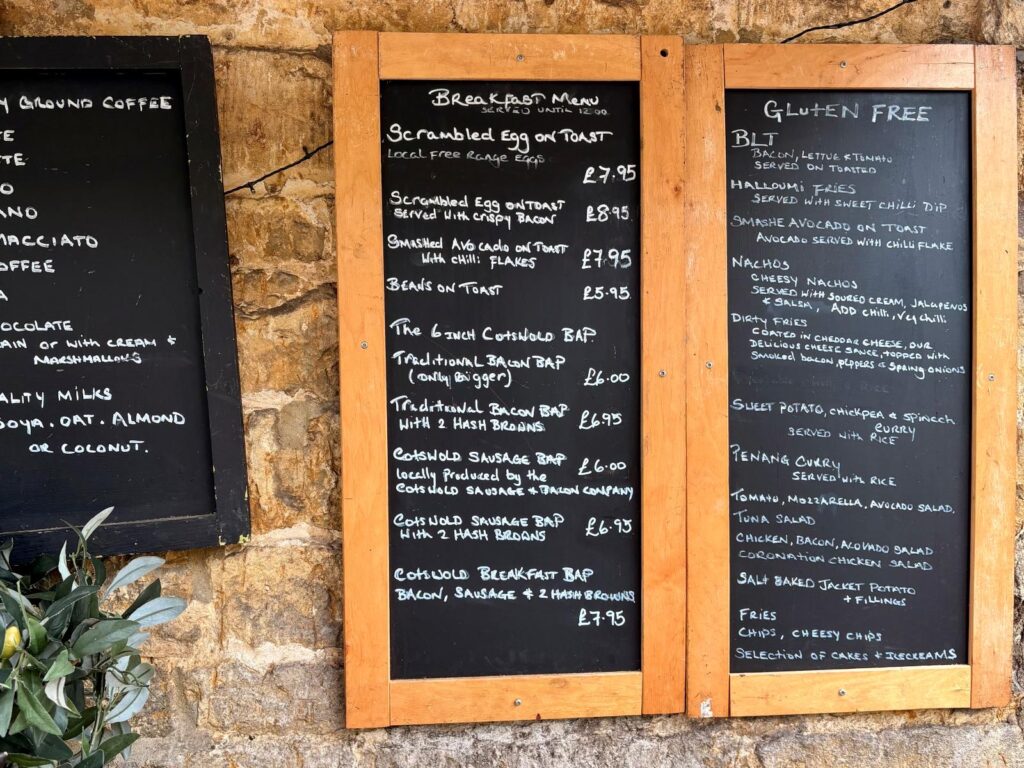 GROUND COFFEE
ANO
MACCIATO
OFFEE
OCOLATE
AIN OR WITH CREAM +
MARSHMALLOWS
ALITY MILKS
SOYA. OAT. ALMOND
OR COCONUT.
Breakfast Menu
SERVED UNTIL 12:00
Scrambled Egg ON TOAST
Local Free Range Eggs
£7.95
Scrambled Egg ON TOAST
Served With Crispy BACON £8.95
Smashed Avocado on Toast
With Chilli FLAKES £7.95
Beans on Toast £5.95
The 6 inch Cotswold BAP.
Traditional Bacon BAP
(only Bigger) £6.00
Traditional Bacon BAP
With 2 HASH BROWNS £6.95
Cotswold Sausage BAP £6.00
locally Produced by the
Cotswold Sausage + Bacon Company
Cotswold Sausage BAP
With 2 HASH BROWNS £6.95
Cotswold Breakfast BAP
Bacon, Sausage + 2 Hash Browns
£7.95
GLUTEN FREE
BLT
BACON, LETTUE + TOMATO
SERVED ON TOASTED
HALLOUMI FRIES
SERVED WITH SWEET CHILLI DIP
SMASHE AVOCADO ON TOAST
AVOCADO SERVED WITH CHILLI FLAKE
NACHOS
CHEESY NACHOS
SERVED WITH SOURED CREAM, JALAPENOS
+ SALSA, ADD CHILLI, VEG CHILLI
DIRTY FRIES
COATED IN CHEDDAR CHEESE, OUR
DELICIOUS CHEESE SAUCE, TOPPED WITH
SMOKED BACON, PEPPERS + SPRING ONIONS
SWEET POTATO, CHICKPEA + SPINACH
CURRY
SERVED WITH RICE
PENANG CURRY
SERVED WITH RICE
TOMATO, MOZZARELLA, AVOCADO SALAD,
TUNA SALAD
CHICKEN, BACON, AVOVADO SALAD
CORONATION CHICKEN SALAD
SALT BAKED JACKET POTATO
+ FILLINGS
FRIES
CHIPS, CHEESY CHIPS
SELECTION OF CAKES + ICECREAMS